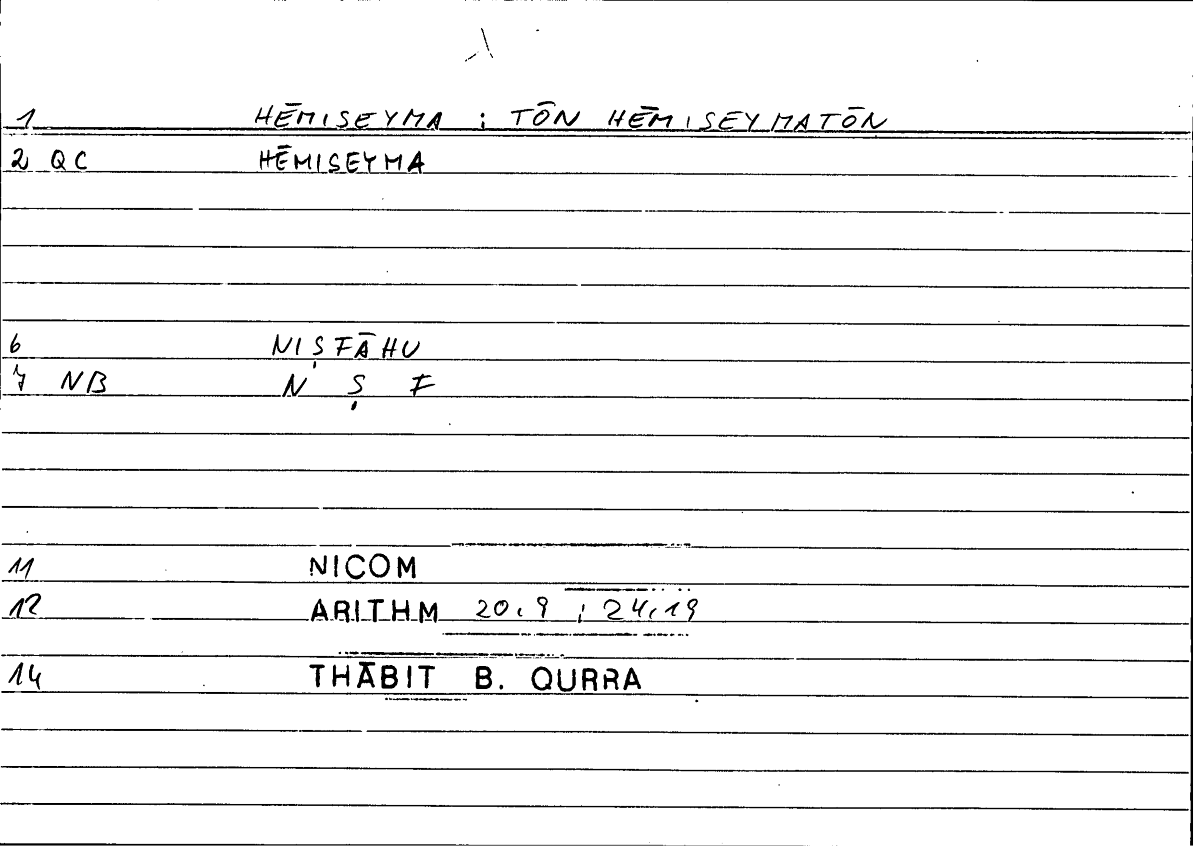 1 HĒMISEYMA ; TŌN HĒMISEYMATŌN
2 QC HĒMISEYMA
6 NIṢFĀHU
7 NB N Ṣ F
11 NICOM
12 ARITHM 20,9 ; 24,19
14 THĀBIT B. QURRA